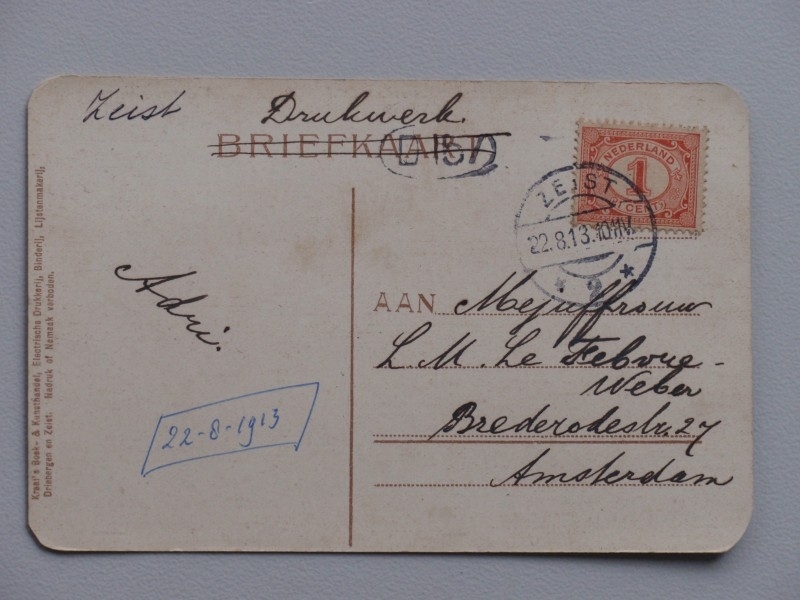 Zeist Drukwerk
BRIEFKAART
NEDERLAND
1
CENT
ZEIST
22.8.13.10-11V.
* 2 *
Adri.
AAN Mejuffrouw
L M. Le Febvre-
Weber
Brederodestr. 27
Amsterdam
22-8-1913
Kraal's Boek- & Kunsthandel, Electrische Drukkerij, Binderij, Lijstenmakerij,
Driebergen en Zeist. Nadruk of Namaak verboden.